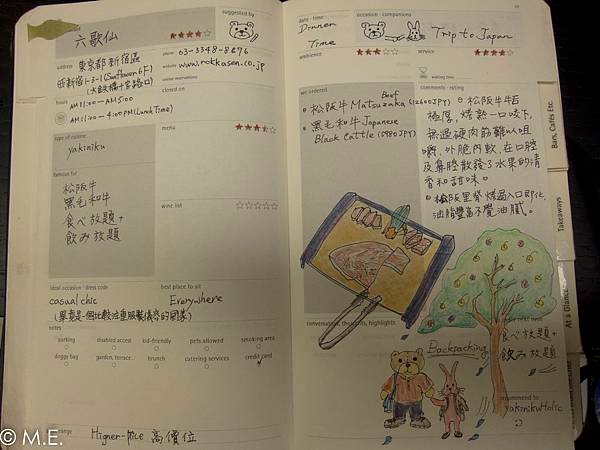 六歌仙
suggested by
phone 03-3348-8676
address 東京都新宿區
西新宿1-3-1 (Sunflower 6F)
website www.rokkasen.co.jp
online reservations
hours AM 11:00 ~ AM 5:00
AM 11:00 ~ 4:00 PM (Lunch Time)
closed on
type of cuisine
yakiniku
menu
famous for
松阪牛
黑毛和牛
食べ放題+
飲み放題
wine list
ideal occasion · dress code
casual chic
best place to sit
Everywhere
notes
parking
disabled access
kid-friendly
pets allowed
smoking area
doggy bag
garden, terrace...
brunch
catering services
credit card
Higher-price 高價位
date · time
Dinner
Time
occasion · companions
Trip to Japan
ambience
service
waiting time
we ordered
松阪牛 Matsuzaka Beef (12600JPY)
黑毛和牛 Japanese
Black Cattle (8980JPY)
comments · rating
松阪牛舌
極厚,烤熟一口咬下,
無過硬肉筋難以咀
嚼,外脆內軟,在口腔
及鼻腔散發了水果的清
香和甜味。
松阪里脊烤過入口即化,
油脂豐富不覺油膩。
conversation, thoughts, highlights
食べ放題+
飲み放題
Backpacking
recommend to
yakinikuHolic
:)
Bars, Cafés Etc.
Takeaways
At a Glance
© M.E.